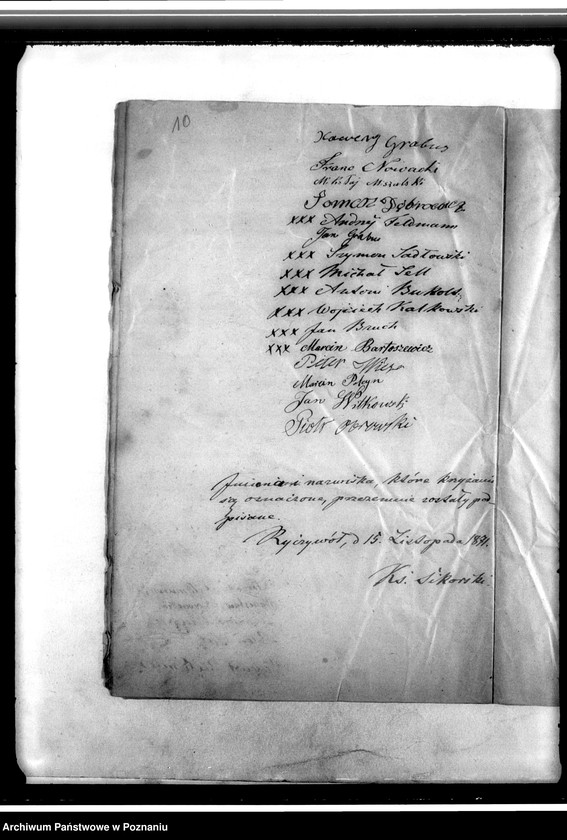 10
Xawery Grabus
Franc Nowacki
Mikołaj Maralski
Tomasz Dobroocz
xxx Andrzej Feldmann
Jan Grabus
xxx Szymon Sadłowski
xxx Michał Sell
xxx Antoni Bukols
xxx Wojciech Kalkowski
xxx Jan Bruch
xxx Marcin Bartoszewicz
Peter
Marcin
Jan Witkowski
Piotr Obrowski
Imiona i nazwiska, które krzyżami
są oznaczone, przezemnie zostały pod
pisane.
Ryczywół, d 15. Listopada 1891.
Ks. Sikorski
Archiwum Państwowe w Poznaniu